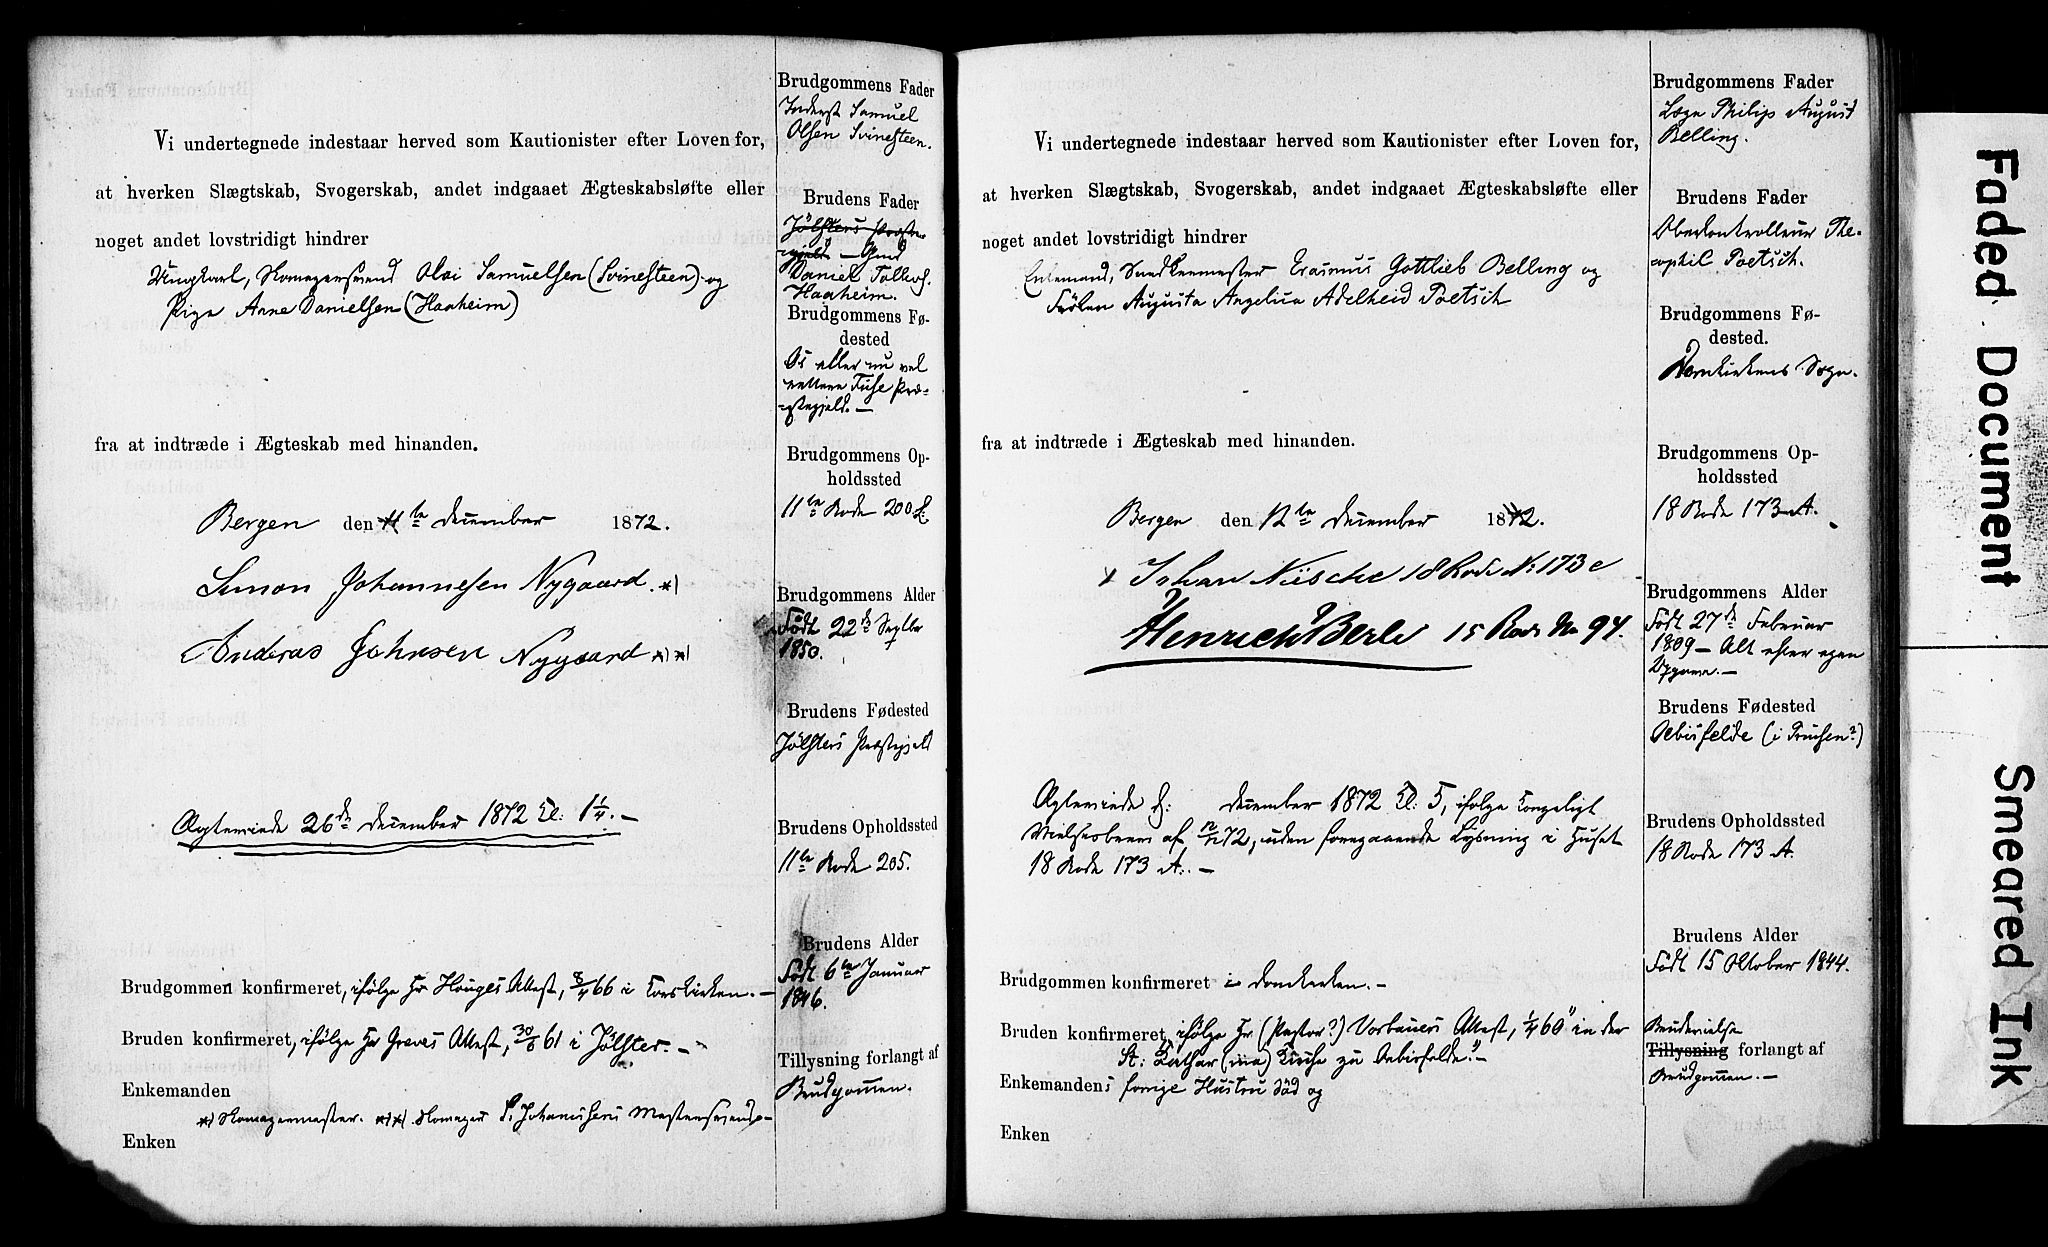 Vi undertegnede indestaar herved som Kautionister efter Loven for,
at hverken Slægtskab, Svogerskab, andet indgaaet Ægteskabsløfte eller
noget andet lovstridigt hindrer
Ungkarl, Skomagersvend Olai Samuelsen (Svinesteen) og
Pige Anne Danielsen (Haaheim)
fra at indtræde i Ægteskab med hinanden.
Bergen den 11te December 1872.
Simon Johannesen Nygaard *)
Andreas Johnsen Nygaard *)*)
Ægteviede 26de December 1872 Kl: 1 1/4. -
Brudgommen konfirmeret, ifølge Hr Houges Attest, 8/4 66 i Korskirken. -
Bruden konfirmeret, ifølge Hr Greves Attest, 30/6 61 i Jølster. -
Enkemanden
*) Skomagermester. *)*) Skomager P. Johannesens Mestersvend. -
Enken
Brudgommens Fader
Inderst Samuel
Olsen Svinesteen.
Brudens Fader
Jølsters Præste-
gjeld - Gmd
Daniel Tollevs.
Haaheim.
Brudgommens Fø-
dested
Os eller nu vel
rettere Fuse Præ-
stegjeld. -
Brudgommens Op-
holdssted
11te Rode 200
Brudgommens Alder
Født 22de Septbr
1850.
Brudens Fødested
Jølsters Præstegjeld
Brudens Opholdssted
11te Rode 205.
Brudens Alder
Født 6te Januar
1846.
Tillysning forlangt af
Brudgommen.
Vi undertegnede indestaar herved som Kautionister efter Loven for,
at hverken Slægtskab, Svogerskab, andet indgaaet Ægteskabsløfte eller
noget andet lovstridigt hindrer
Enkemand, Snedkermester Erasmus Gottlieb Belling og
Frøken Augusta Angelica Adelheid Poetsch
fra at indtræde i Ægteskab med hinanden.
Bergen den 12te December 1872.
Johan Nitsche 18 Rode No 173 c
Henrich Berle 15 Rode No 94.
Ægteviede d: December 1872 Kl: 5, ifølge Kongeligt
Vielsesbrev af 12/12 72, uden foregaaende Lysning i Huset
18 Rode 173 A. -
Brudgommen konfirmeret i Domkirken. -
Bruden konfirmeret, ifølge Hr (Pastor?) Vorbauers Attest, 1/4 60 "in der
St: Kathar(ina) Kirche zu Oebisfelde." -
Enkemandens forrige Hustru død og
Enken
Brudgommens Fader
Læge Philip August
Belling.
Brudens Fader
Oberkontrolleur The-
ophil Poetsch.
Brudgommens Fø-
dested.
Domkirkens Sogn.
Brudgommens Op-
holdssted
18 Rode 173 A.
Brudgommens Alder
Født 27de Februar
1809 - Alt efter egen
Opgave. -
Brudens Fødested
Oebisfelde (i Preusen?)
Brudens Opholdssted
18 Rode 173 A.
Brudens Alder
Født 15 Oktober 1844.
Brudevielse
Tillysning forlangt af
Brudgommen. -
Faded Document
Smeared Ink